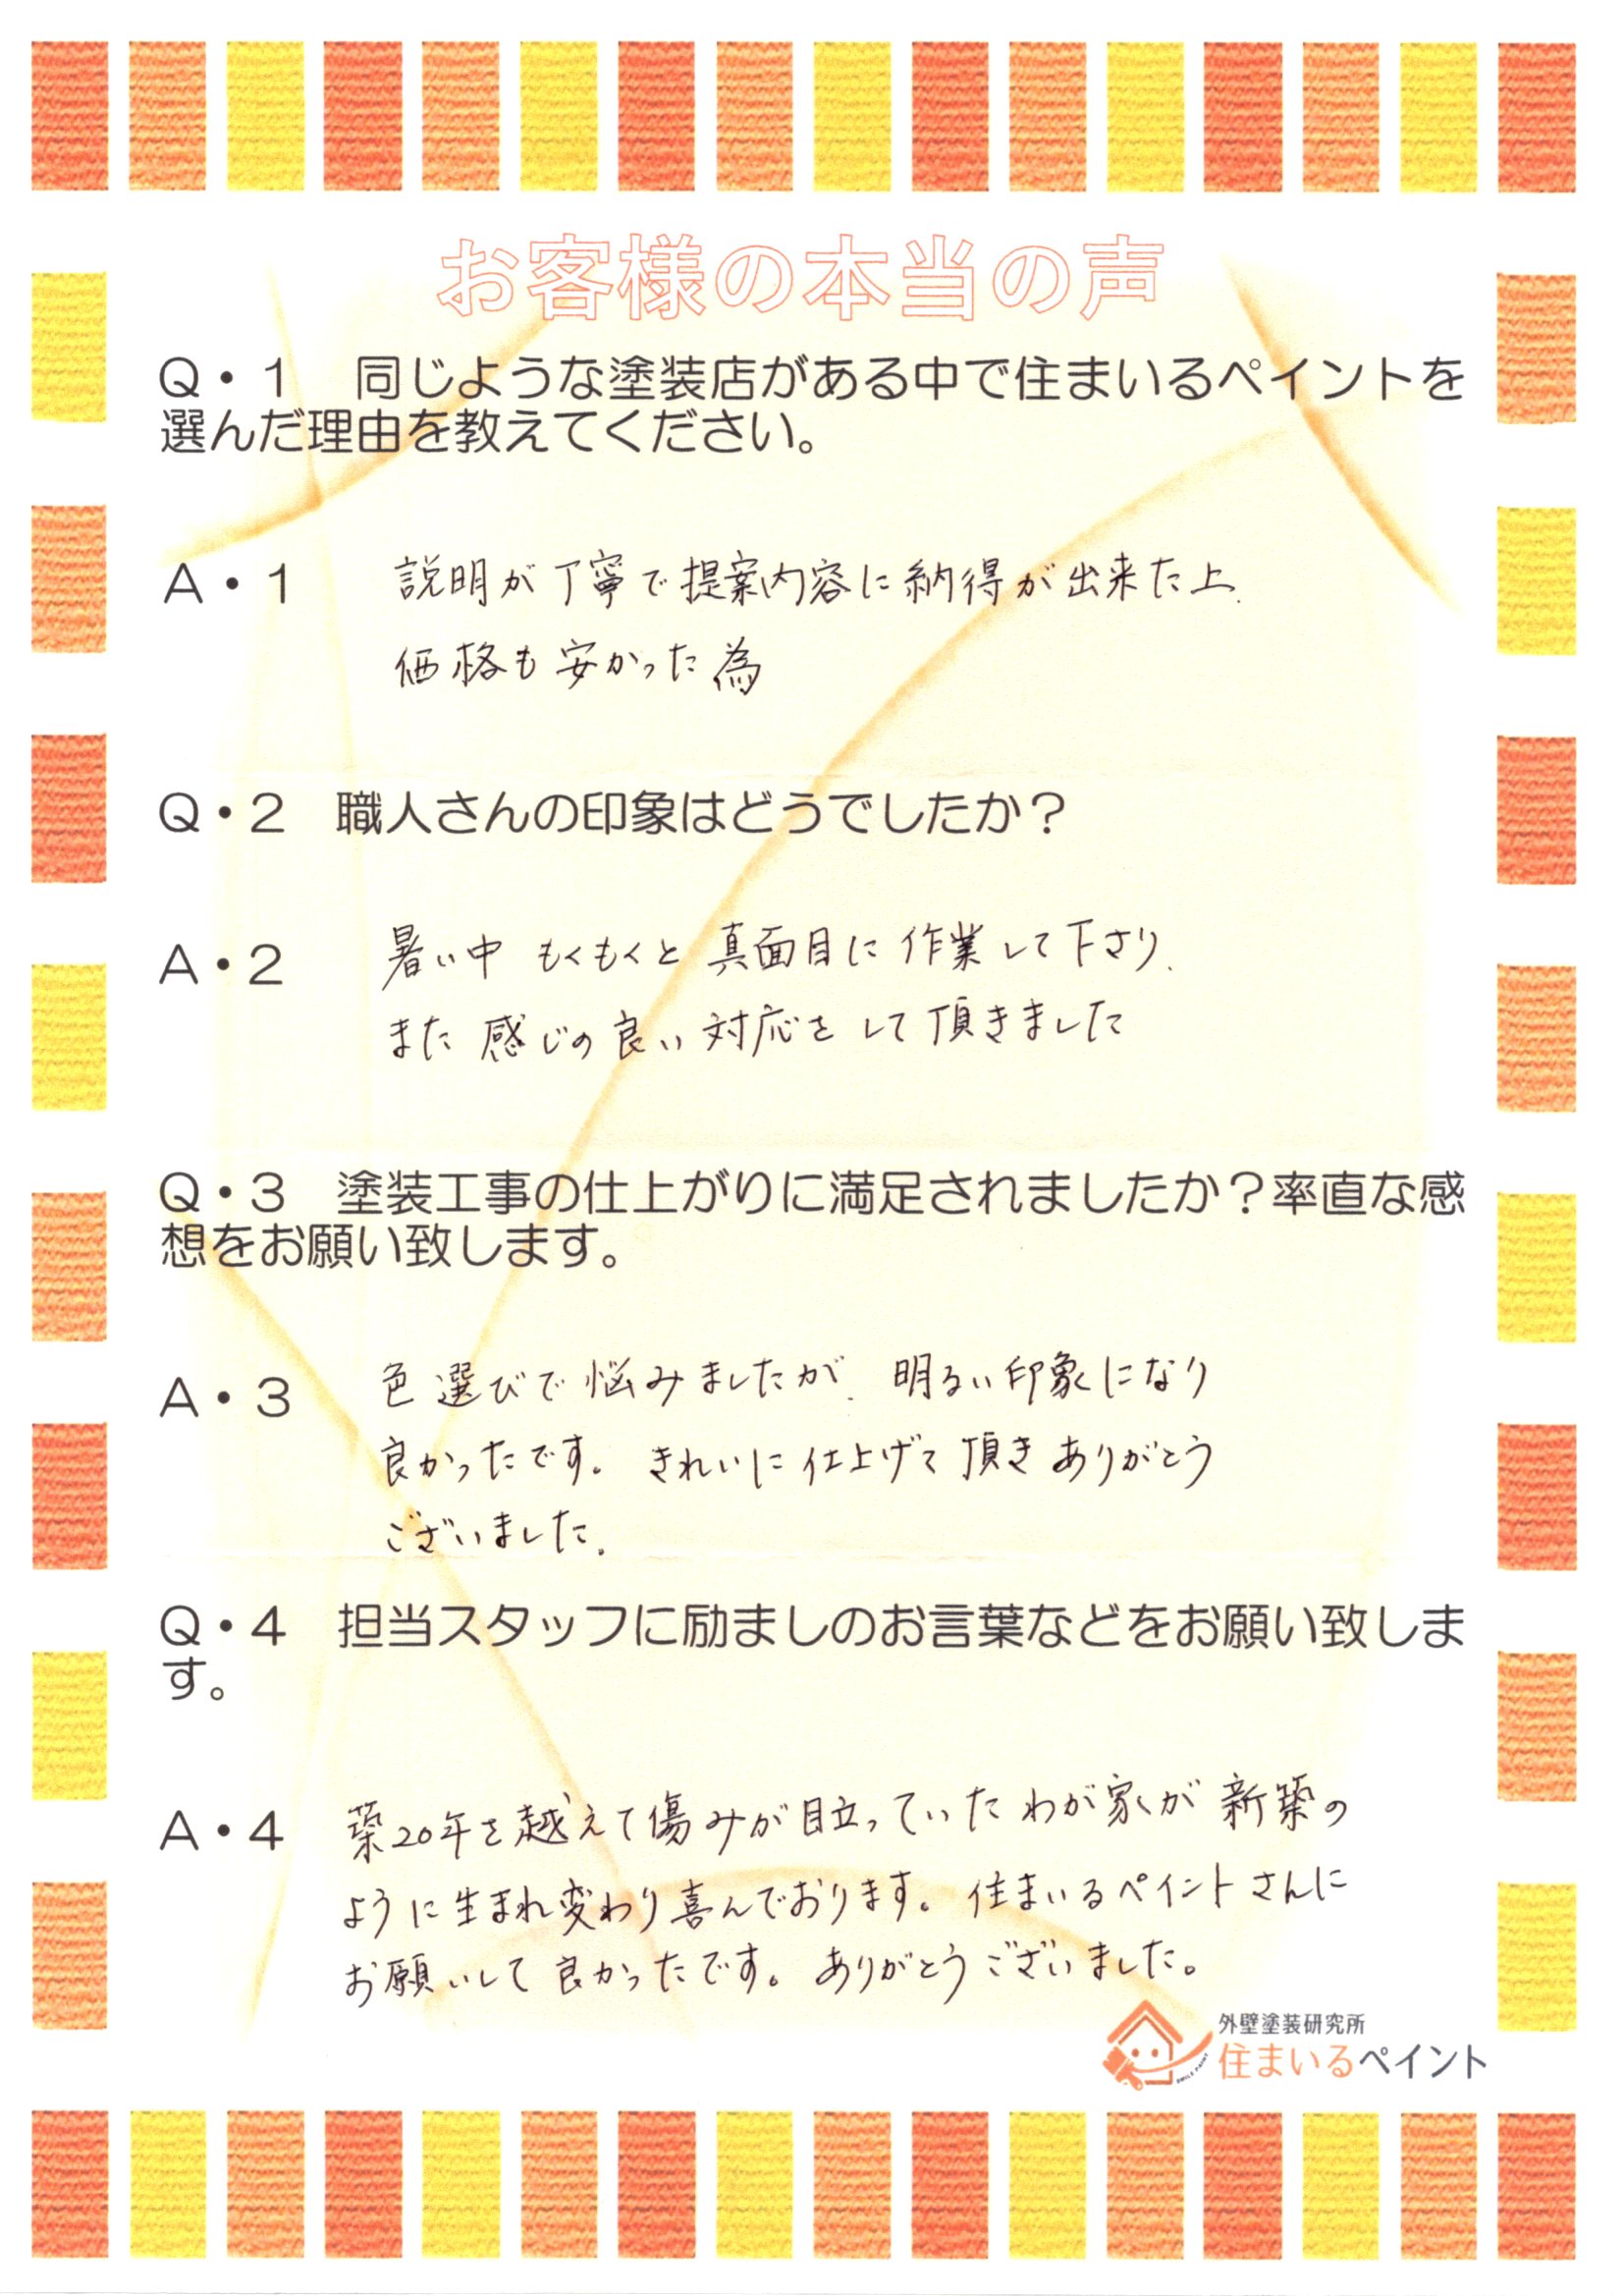 お客様の本当の声
Q・1　同じような塗装店がある中で住まいるペイントを
選んだ理由を教えてください。
A・1　説明が丁寧で提案内容に納得が出来た上、
価格も安かった為
Q・2　職人さんの印象はどうでしたか？
A・2　暑い中 もくもくと 真面目に 作業して下さり、
また 感じの良い 対応を して頂きました
Q・3　塗装工事の仕上がりに満足されましたか？率直な感
想をお願い致します。
A・3　色選びで悩みましたが、明るい印象になり
良かったです。 きれいに仕上げて頂き ありがとう
ございました。
Q・4　担当スタッフに励ましのお言葉などをお願い致しま
す。
A・4　築20年を越えて傷みが目立っていた わが家が 新築の
ように生まれ変わり喜んでおります。 住まいるペイントさんに
お願いして良かったです。 ありがとうございました。
外壁塗装研究所
住まいるペイント